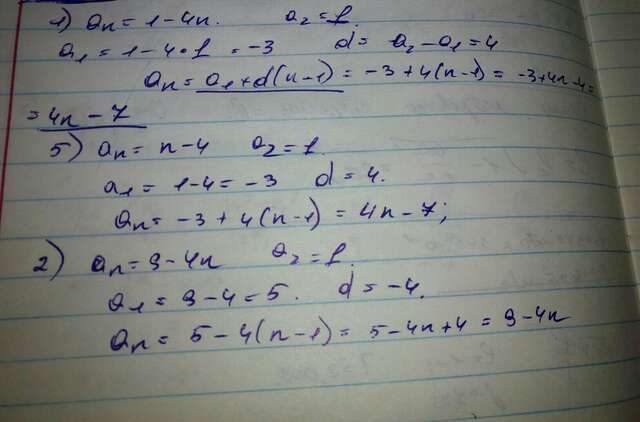 1) aₙ = 1 - 4n. a₂ = 1.
a₁ = 1 - 4•1 = -3 d = a₂ - a₁ = 4
aₙ = a₁ + d(n-1) = -3 + 4(n-1) = -3 + 4n - 4 =
= 4n - 7
5) aₙ = n - 4 a₂ = 1.
a₁ = 1 - 4 = -3 d = 4.
aₙ = -3 + 4(n-1) = 4n - 7;
2) aₙ = 9 - 4n a₂ = 1.
a₁ = 9 - 4 = 5. d = -4.
aₙ = 5 - 4(n-1) = 5 - 4n + 4 = 9 - 4n